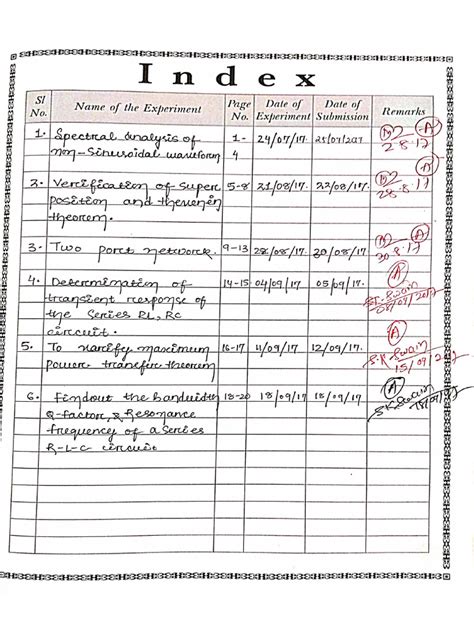 Index
Sl No. Name of the Experiment Page No. Date of Experiment Date of Submission Remarks
1. Spectral Analysis of 1- 24/07/17 25/07/2017 A
non-Sinusoidal waveform 4 2.8.17
2. Verification of Super 5-8 21/08/17. 22/08/17. A
position and thevening 28.8.17
theorem.
3. Two port network. 9-13 28/08/17 30/08/17 A
30.8.17
4. Determination of 14-15 04/09/17 05/09/17. A
transient response of S.K. Swain
the Series RL, RC
circuit.
5. To varify maximum 16-17 /09/17 12/09/17. A
power transfer theorem S.K Swain
15/09/2017
6. Findout the bandwidth 18-20 18/09/17 18/09/17 A
Q-factor, & Resonance S.K Swain
frequency of a Series 18/09/17
R-L-C circuit